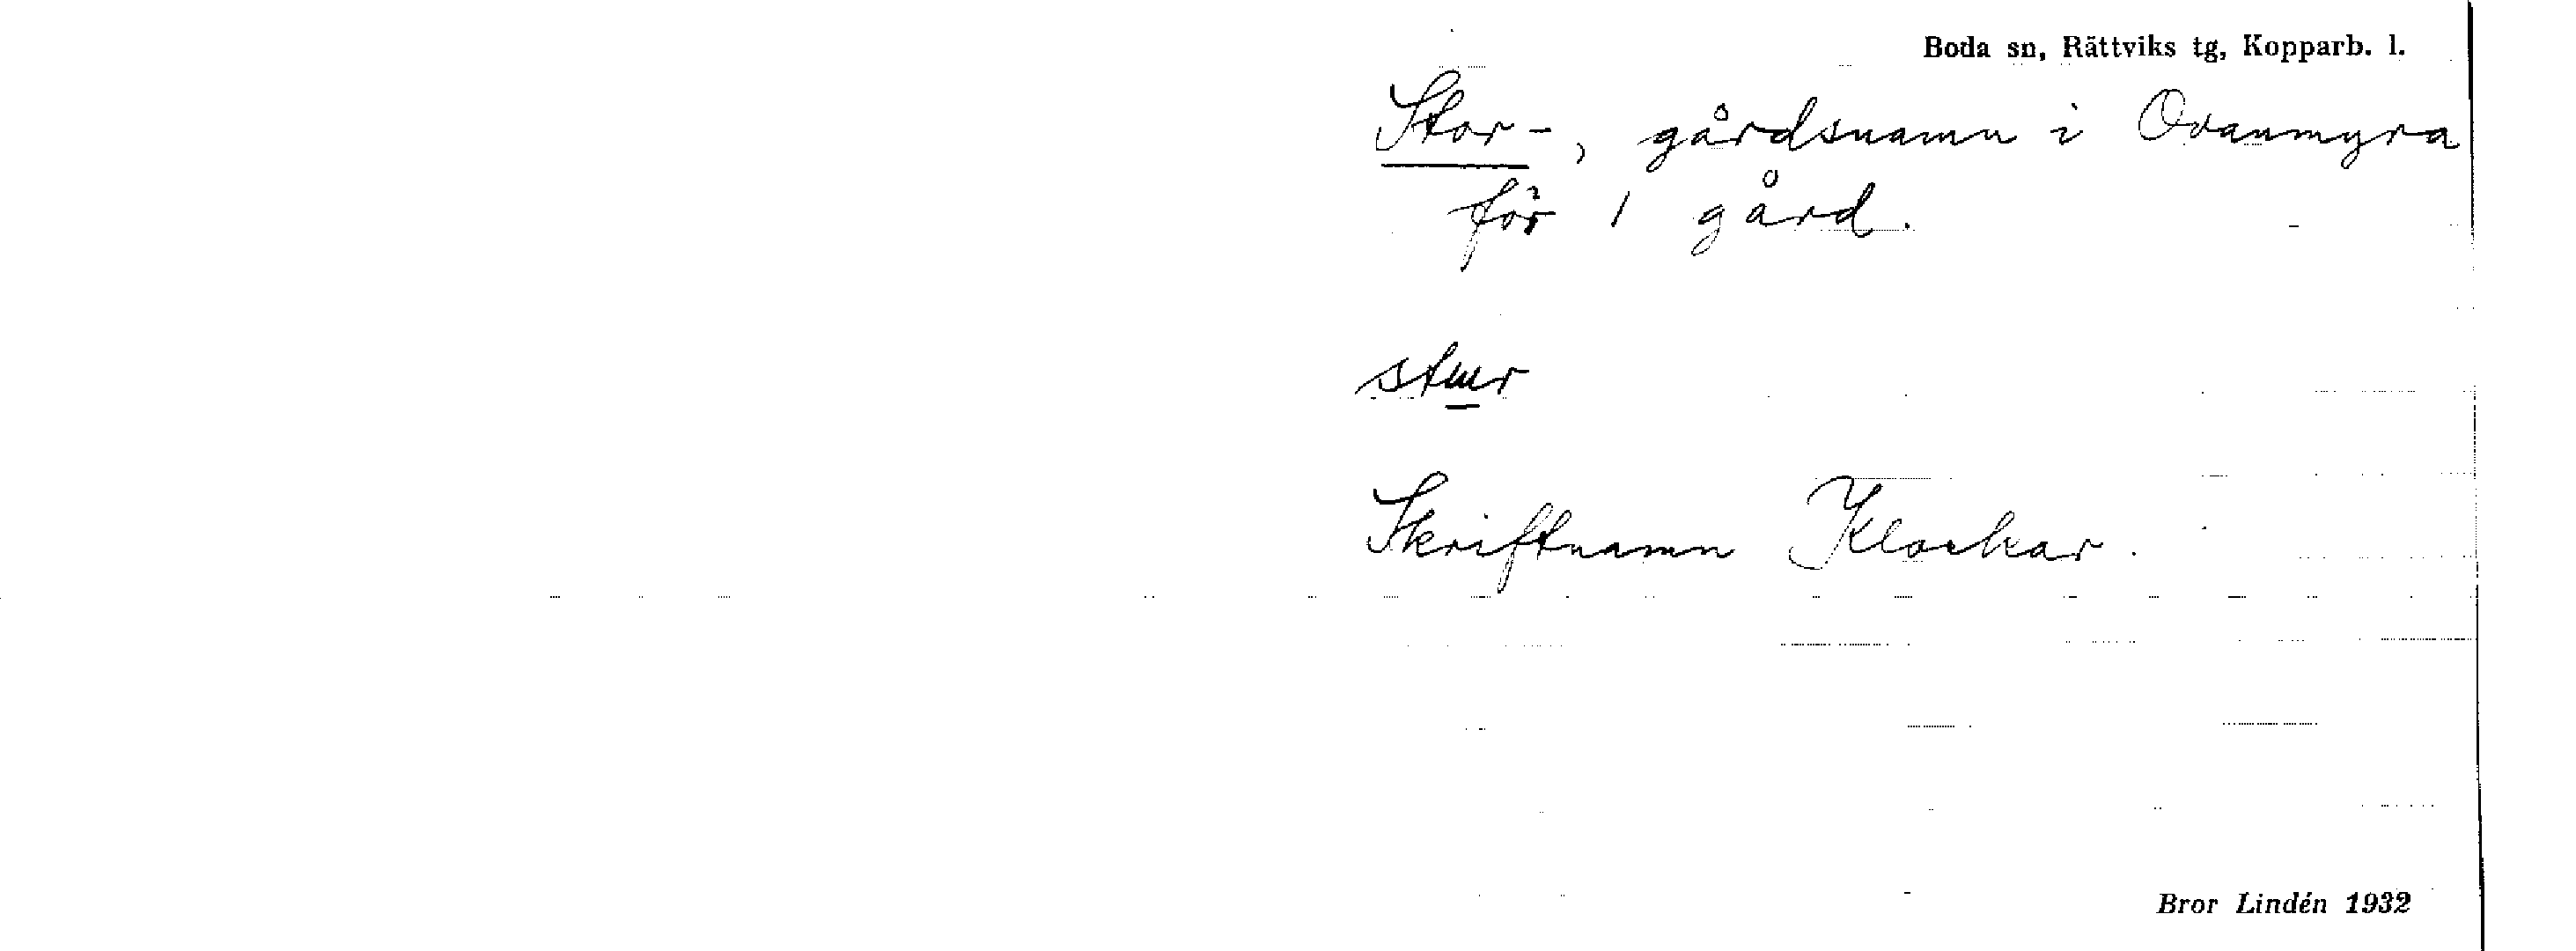 Boda sn, Rättviks tg, Kopparb. l.
Stor-, gårdsnamn i Ovanmyra
för 1 gård.
stur
Skriftnamn Klockar.
Bror Lindén 1932